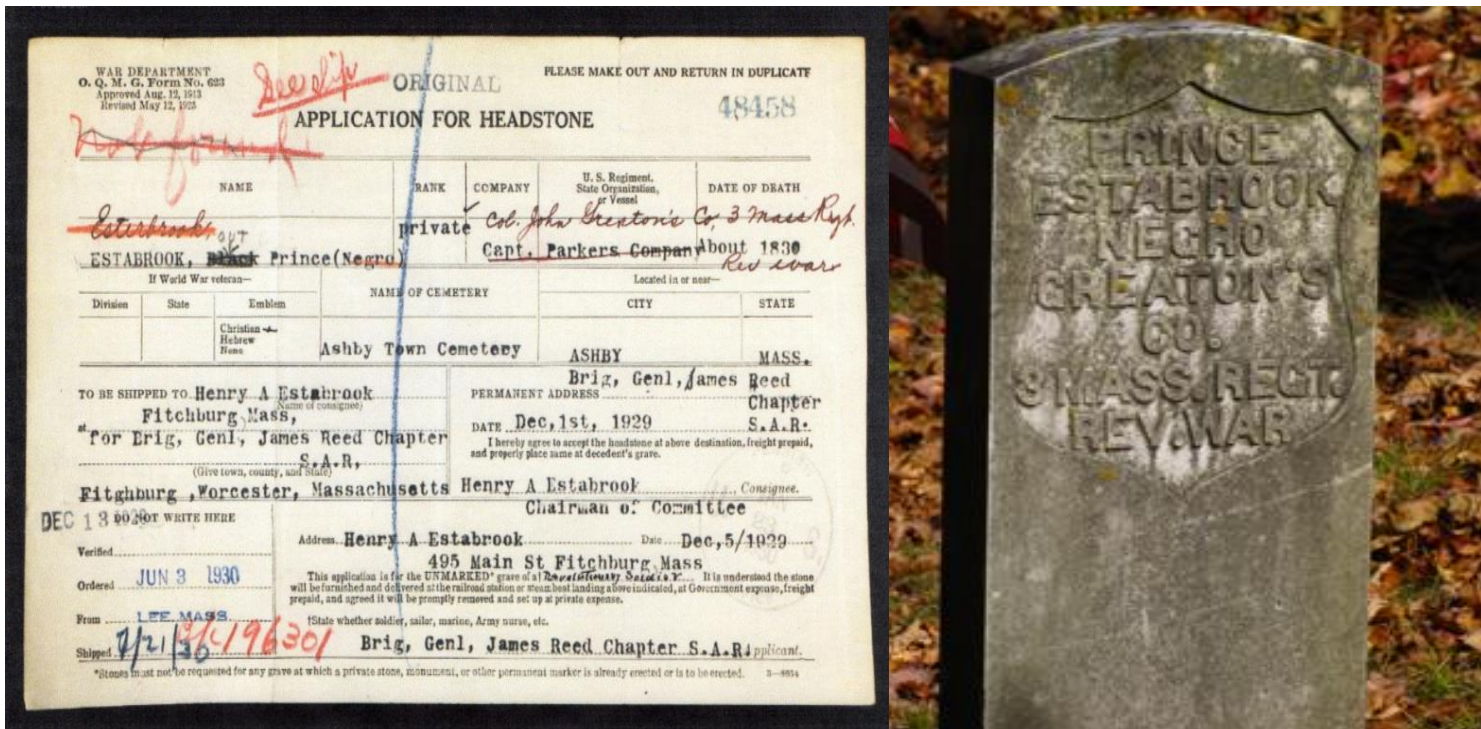 WAR DEPARTMENT
O. Q. M. G. Form No. 623
Approved Aug. 12, 1913
Revised May 12, 1925
See slip
ORIGINAL
PLEASE MAKE OUT AND RETURN IN DUPLICATE
48458
APPLICATION FOR HEADSTONE
NAME
RANK
COMPANY
U. S. Regiment,
State Organization,
or Vessel
DATE OF DEATH
Esterbrook, OUT
ESTABROOK, Black Prince(Negro)
private
Col. John Greaton's Co, 3 Mass Regt.
Capt. Parkers Company
About 1830
Rev war
If World War veteran—
Division
State
Emblem
Christian
Hebrew
None
NAME OF CEMETERY
Ashby Town Cemetery
Located in or near—
CITY
STATE
ASHBY
MASS.
TO BE SHIPPED TO Henry A Estabrook
(Name of consignee)
at Fitchburg Mass,
for Brig, Genl, James Reed Chapter
S.A.R,
(Give town, county, and State)
Fitghburg ,Worcester, Massachusetts
Brig, Genl, James Reed
PERMANENT ADDRESS
Chapter
DATE Dec,1st, 1929
S.A.R.
I hereby agree to accept the headstone at above destination, freight prepaid,
and properly place same at decedent's grave.
Henry A Estabrook, Consignee.
Chairman of Committee
DEC 13
DO NOT WRITE HERE
Verified
Ordered JUN 3 1930
From LEE MASS.
Shipped 7/21/30
196301
Address Henry A Estabrook Date Dec,5/1929
495 Main St Fitchburg Mass
This application is for the UNMARKED* grave of a† Revolutionary Soldier. It is understood the stone
will be furnished and delivered at the railroad station or steamboat landing above indicated, at Government expense, freight
prepaid, and agreed it will be promptly removed and set up at private expense.
†State whether soldier, sailor, marine, Army nurse, etc.
Brig, Genl, James Reed Chapter S.A.R. Applicant.
*Stones must not be requested for any grave at which a private stone, monument, or other permanent marker is already erected or is to be erected.
PRINCE
ESTABROOK
NEGRO
GREATON'S
CO.
3 MASS. REGT.
REV. WAR